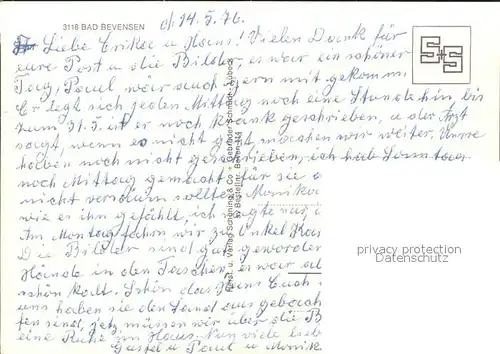 3118 BAD BEVENSEN
d. 14.5.76.
Liebe Erika u. Hans! Vielen Dank für
eure Post u. die Bilder, es war ein schöner
Tag, Paul wär auch gern mit gekommen
Er legt sich jeden Mittag noch eine Stunde hin, bis
zum 31.5. ist er noch krank geschrieben, u. der Arzt
sagt, wenn es nicht geht, machen wir weiter.
haben noch nicht geschrieben, ich hab Sonntag
noch Mittag gemacht für sie
nicht versäum sollten Monika
wie es ihn gefählt, ich sagte
Am Montag fahren wir zu Onkel
Die Bilder sind gut geworden
Hände in den Taschen, es war
schön kalt. Schön das Hans Euch
uns haben sie den Sand aus gebag
fen sind, jetz müssen wir über die B
eine Ruhe im Haus. Nun viele liebe
Gustel u. Paul u. Monik
S+S
Verlag Schöning & Co + Gebrüder Schmidt, Lübeck
privacy protection
Datenschutz